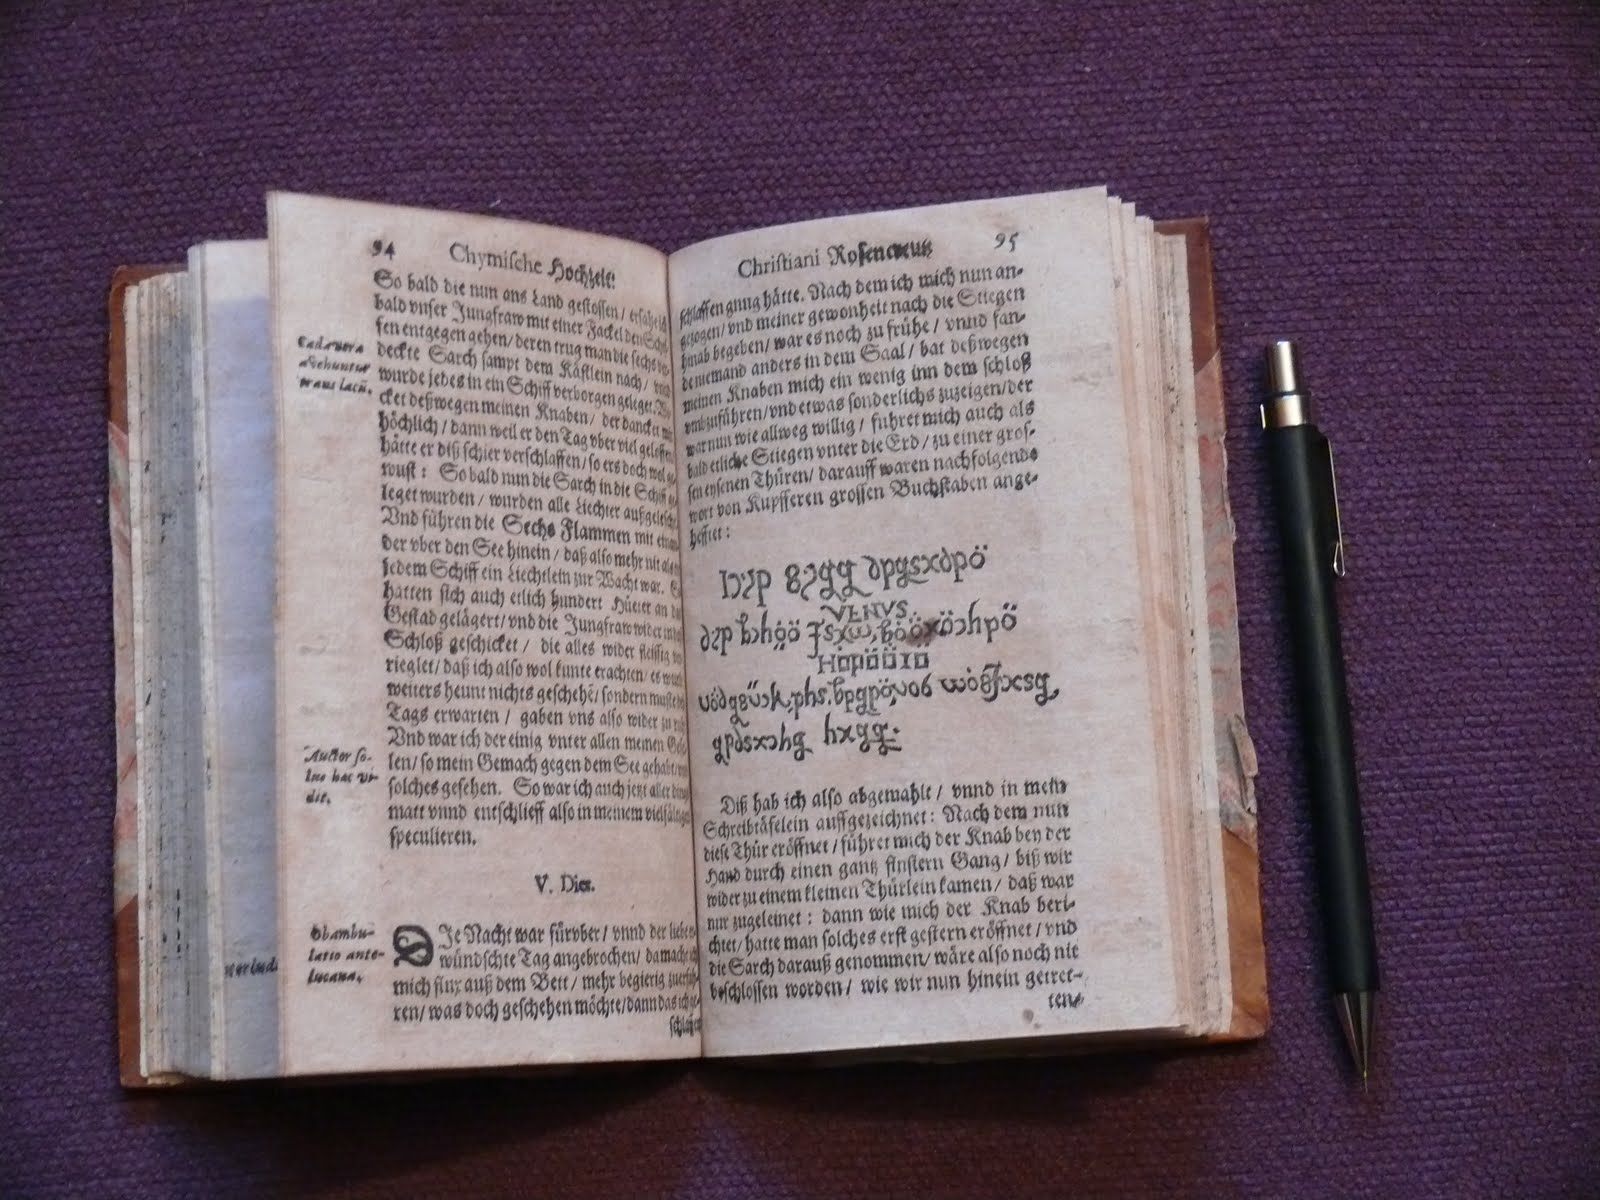 94 Chymische Hochzeit:
So bald die nun ans Land gestossen / ersahe ich
bald vnser Jungfraw mit einer Fackel den Schif-
fen entgegen gehen / deren trug man die sechs
deckte Sarch sampt dem Kästlein nach /
wurde jedes in ein Schiff verborgen geleget.
cket deßwegen meinen Knaben / der dancket mir
höchlich / dann weil er den Tag vber viel geloffen
hätte er diß schier verschlaffen / so ers doch wol
wust : So bald nun die Sarch in die Schiff
leget wurden / wurden alle Liechter außgelescht
Vnd führen die Sechs Flammen mit
der vber den See hinein / daß also mehr nit als
jedem Schiff ein Liechtlein zur Wacht war.
hatten sich auch etlich hundert Hüeter an
Gestad gelägert / vnd die Jungfraw wider
Schloß geschicket / die alles wider fleissig
rieglet / daß ich also wol kunte erachten / es
weiters heunt nichts geschehē / sondern
Tags erwarten / gaben vns also wider zu
Vnd war ich der einig vnter allen meinen Gesel-
len / so mein Gemach gegen dem See gehabt /
solches gesehen. So war ich auch jetzt aller
matt vnnd entschlieff also in meinem vielfältigen
speculieren.
V. Dies.
DJe Nacht war fürvber / vnnd der liebe
wündschte Tag angebrochen / da mache ich
mich flux auß dem Bett / mehr begierig
ren / was doch geschehen möchte / dann das ich
schlaffen
Cadavera
avehuntur
trans lacū.
Auctor so-
lus hæc vi-
dit.
Obambu-
latio ante-
lucana.
Christiani Rosencreutz 95
schlaffen gnug hätte. Nach dem ich mich nun an-
gezogen / vnd meiner gewonheit nach die Stiegen
hinab begeben / war es noch zu frühe / vnnd fan-
de niemand anders in dem Saal / bat deßwegen
meinen Knaben mich ein wenig inn dem schloß
vmbzuführen / vnd etwas sonderlichs zuzeigen / der
war nun wie allweg willig / führet mich auch als
bald etliche Stiegen vnter die Erd / zu einer gros-
sen eysenen Thüren / darauff waren nachfolgende
wort von Kupfferen grossen Buchstaben ange-
hefftet :
VENVS
Diß hab ich also abgemahlt / vnnd in mein
Schreibtäfelein auffgezeichnet : Nach dem nun
diese Thür eröffnet / führet mich der Knab bey der
Hand durch einen gantz finstern Gang / biß wir
wider zu einem kleinen Thürlein kamen / daß war
nur zugeleinet : dann wie mich der Knab beri-
chtet / hatte man solches erst gestern eröffnet / vnd
die Sarch darauß genommen / wäre also noch nit
beschlossen worden / wie wir nun hinein getret-
ten /